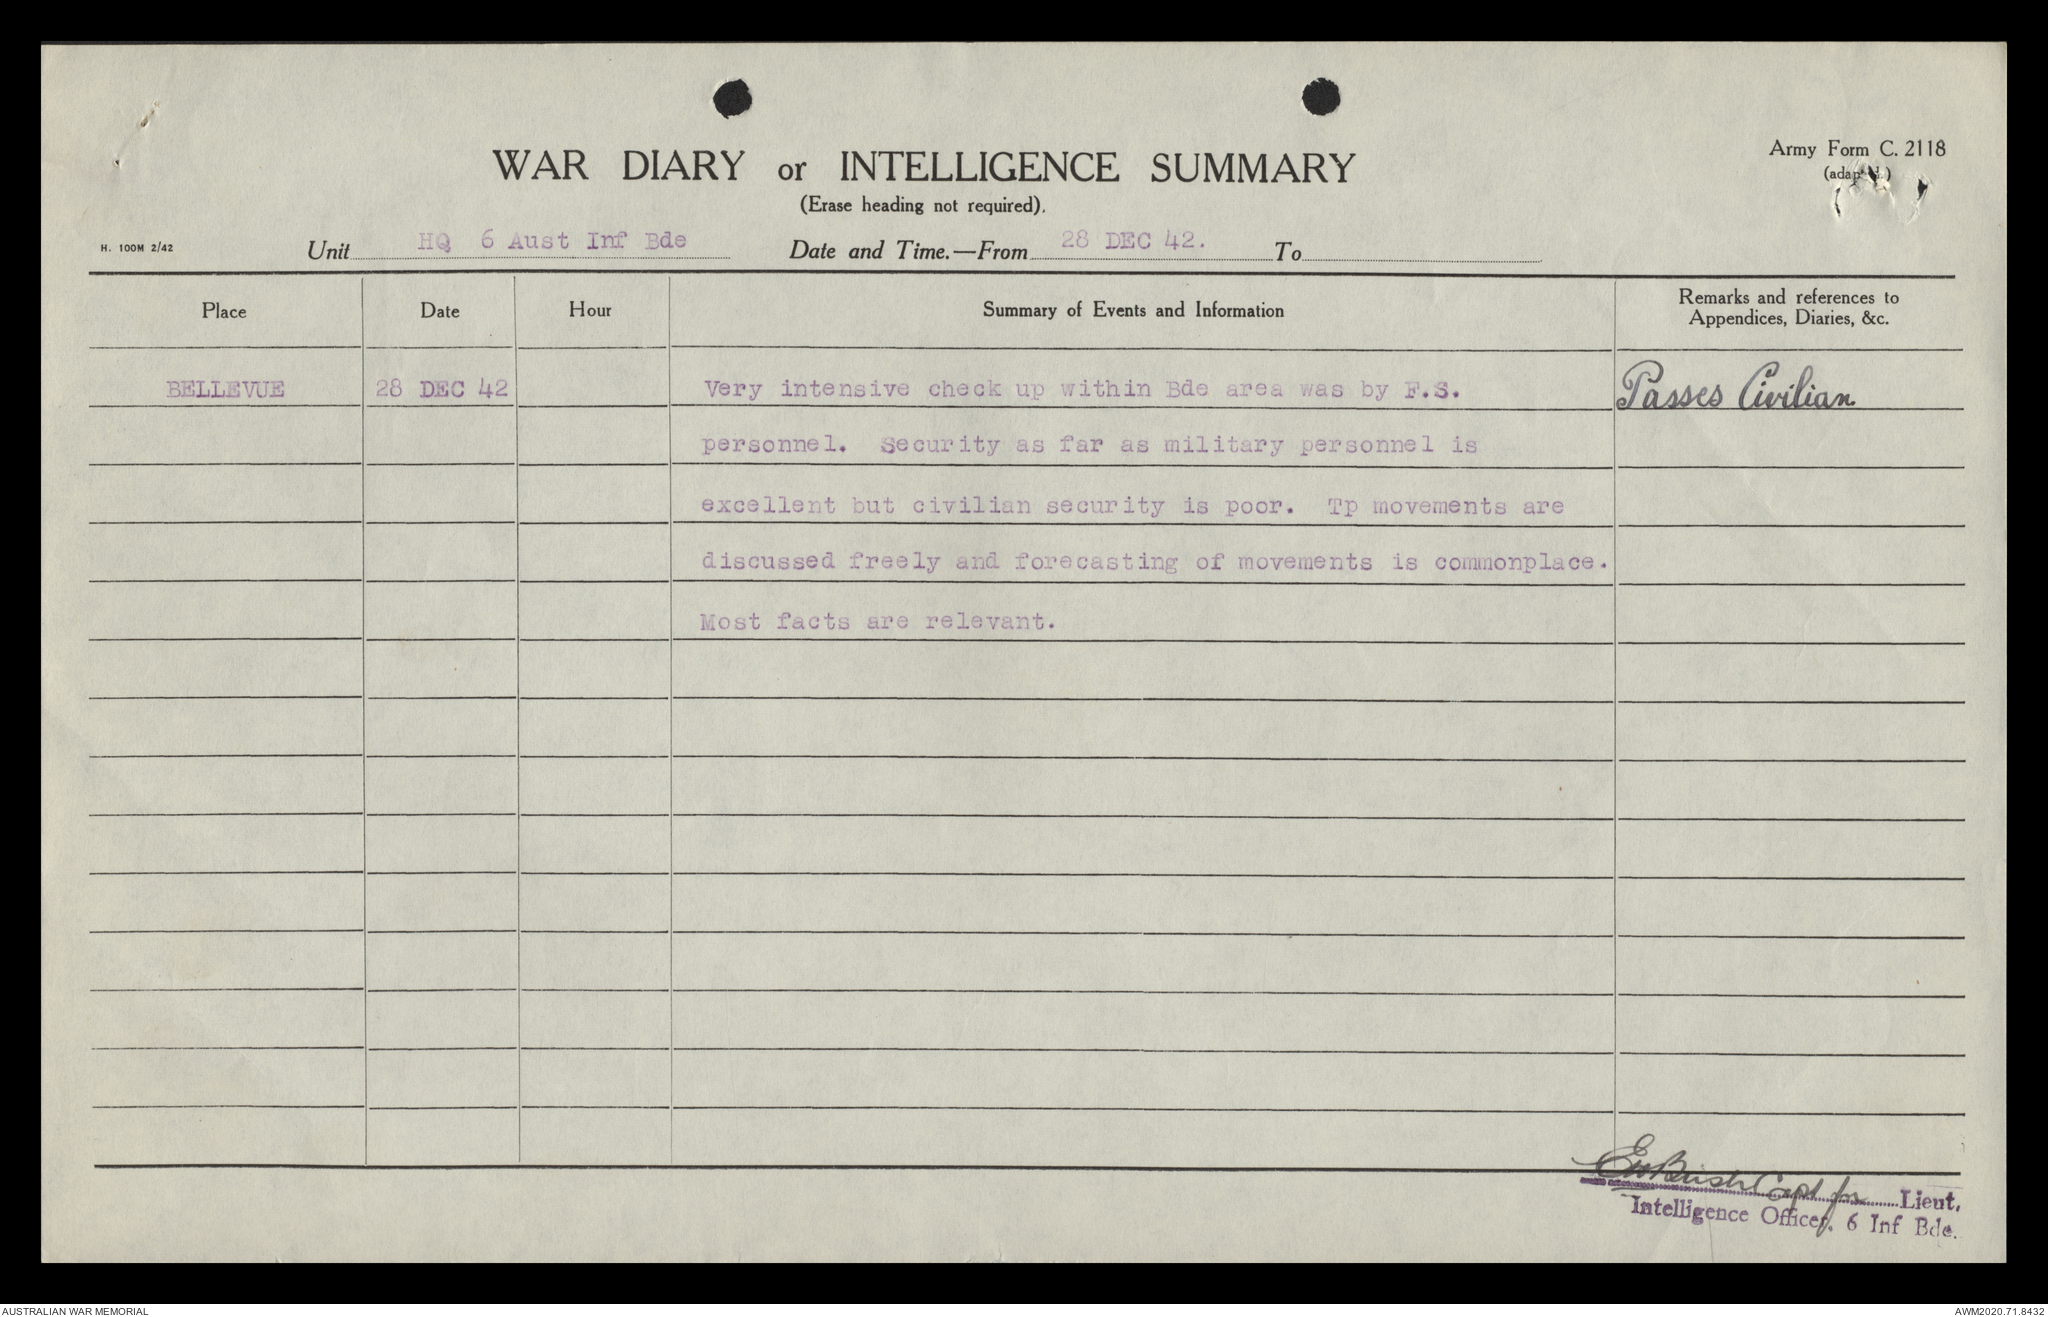 WAR DIARY or INTELLIGENCE SUMMARY
(Erase heading not required).
Army Form C. 2118
H. 100M 2/42 Unit HQ 6 Aust Inf Bde Date and Time.—From 28 DEC 42. To
Place Date Hour Summary of Events and Information Remarks and references to
Appendices, Diaries, &c.
BELLEVUE 28 DEC 42 Very intensive check up within Bde area was by F.S. Passes Civilian
personnel. Security as far as military personnel is
excellent but civilian security is poor. Tp movements are
discussed freely and forecasting of movements is commonplace.
Most facts are relevant.
Capt for Lieut.
Intelligence Officer. 6 Inf Bde.
AUSTRALIAN WAR MEMORIAL AWM2020.71.8432